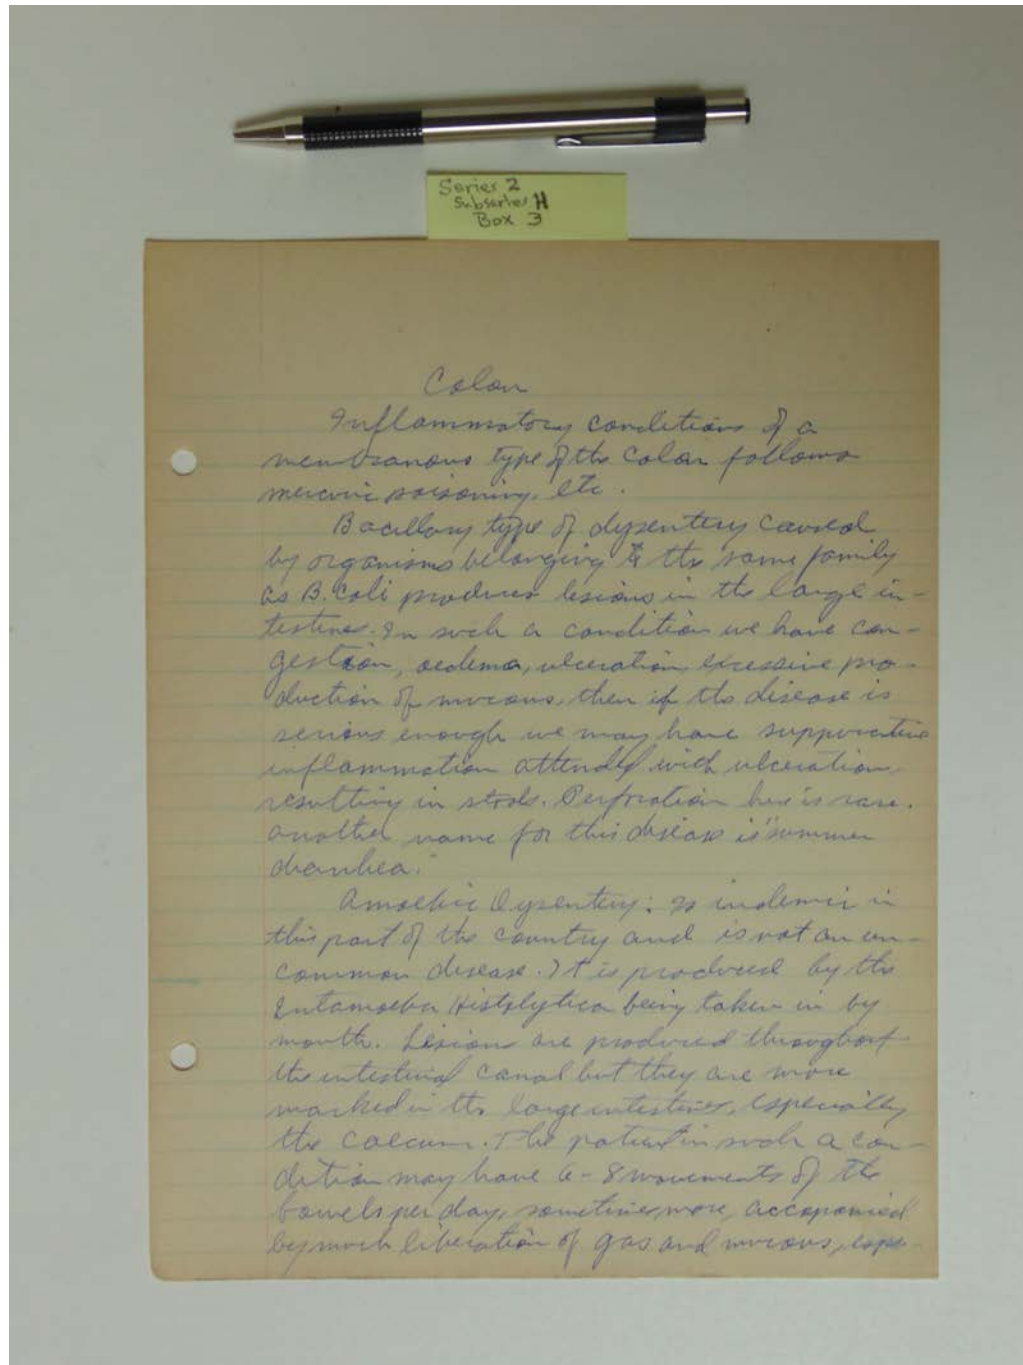 Series 2
Subseries H
Box 3
Colon
Inflammatory conditions of a
membranous type of the Colon follows
mercuric poisoning, etc.
Bacillary type of dysentery caused
by organisms belonging to the same family
as B. Coli produces lesions in the large in-
testines. In such a condition we have con-
gestion, oedema, ulceration, excessive pro-
duction of mucous, then if the disease is
serious enough we may have suppurative
inflammation attended with ulceration,
resulting in stools. Perforation here is rare.
another name for this disease is "summer
diarrhea."
Amoebic Dysentery: is indemic in
this part of the country and is not an un-
common disease. It is produced by the
Entamoeba Histolytica being taken in by
mouth. Lesions are produced throughout
the intestinal canal but they are more
marked in the large intestines, especially
the Caecum. The patient in such a con-
dition may have 6-8 movements of the
bowels per day, sometimes more, accopanied
by much liberation of gas and mucous, espe-